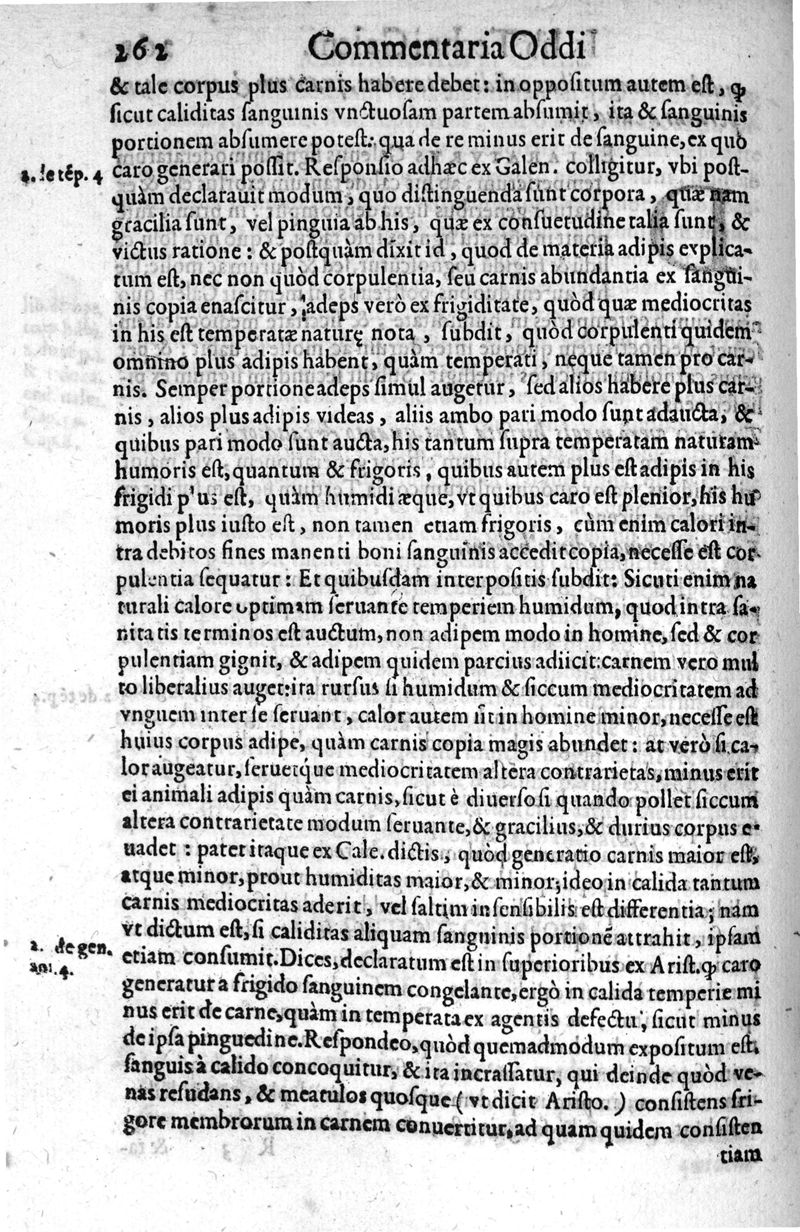 262 Commentaria Oddi
& tale corpus plus carnis habere debet: in oppositum autem est, ꝙ
sicut caliditas sanguinis vnctuosam partem absumit, ita & sanguinis
portionem absumere potest. qua de re minus erit de sanguine, ex quo
2. de tẽp. 4
caro generari possit. Responsio adhæc ex Galen. colligitur, vbi post-
quàm declarauit modum, quo distinguenda sunt corpora, quæ nam
gracilia sunt, vel pinguia ab his, quæ ex consuetudine talia sunt, &
victus ratione: & postquàm dixit id, quod de materia adipis explica-
tum est, nec non quòd corpulentia, seu carnis abundantia ex sangui-
nis copia enascitur, adeps verò ex frigiditate, quòd quæ mediocritas
in his est temperatæ naturę nota, subdit, quòd corpulenti quidem
omnino plus adipis habent, quàm temperati, neque tamen pro car-
nis. Semper portione adeps simul augetur, sed alios habere plus car-
nis, alios plus adipis videas, aliis ambo pari modo sunt adaucta, &
quibus pari modo sunt aucta, his tantum supra temperatam naturam
humoris est, quantum & frigoris, quibus autem plus est adipis in his
frigidi plus est, quàm humidi æque, vt quibus caro est plenior, his hu
moris plus iusto est, non tamen etiam frigoris, cùm enim calori in-
tra debitos fines manenti boni sanguinis accedit copia, necesse est cor
pulentia sequatur: Et quibusdam interpositis subdit: Sicuti enim na
turali calore optimam seruante temperiem humidum, quod intra sa-
nitatis terminos est auctum, non adipem modo in homine, sed & cor
pulentiam gignit, & adipem quidem parcius adiicit: carnem vero mul
to liberalius auget: ita rursus si humidum & siccum mediocritatem ad
vnguem inter se seruant, calor autem sit in homine minor, necesse est
huius corpus adipe, quàm carnis copia magis abundet: at verò si ca-
lor augeatur, seruetq́ue mediocritatem altera contrarietas, minus erit
ei animali adipis quàm carnis, sicut è diuerso si quando pollet siccum
altera contrarietate modum seruante, & gracilius, & durius corpus e-
uadet: patet itaque ex Gale. dictis, quòd generatio carnis maior est,
atque minor, prout humiditas maior, & minor; ideo in calida tantum
carnis mediocritas aderit, vel saltim insensibilis est differentia; nam
vt dictum est, si caliditas aliquam sanguinis portionẽ attrahit, ipsam
2. de gen.
ani. 4.
etiam consumit. Dices, declaratum est in superioribus ex Arist. ꝙ caro
generatur a frigido sanguinem congelante, ergò in calida temperie mi
nus erit de carne, quàm in temperata ex agentis defectu, sicut minus
de ipsa pinguedine. Respondeo, quòd quemadmodum expositum est,
sanguis à calido concoquitur, & ita incrassatur, qui deinde quòd ve-
nas resudans, & meatulos quosque (vt dicit Aristo.) consistens fri-
gore membrorum in carnem conuertitur, ad quam quidem consisten
tiam